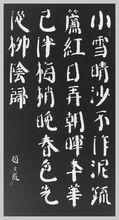 小雪晴沙不作泥疏
簾紅日弄朝暉年華
已伴梅梢晚春色先
從柳陰歸